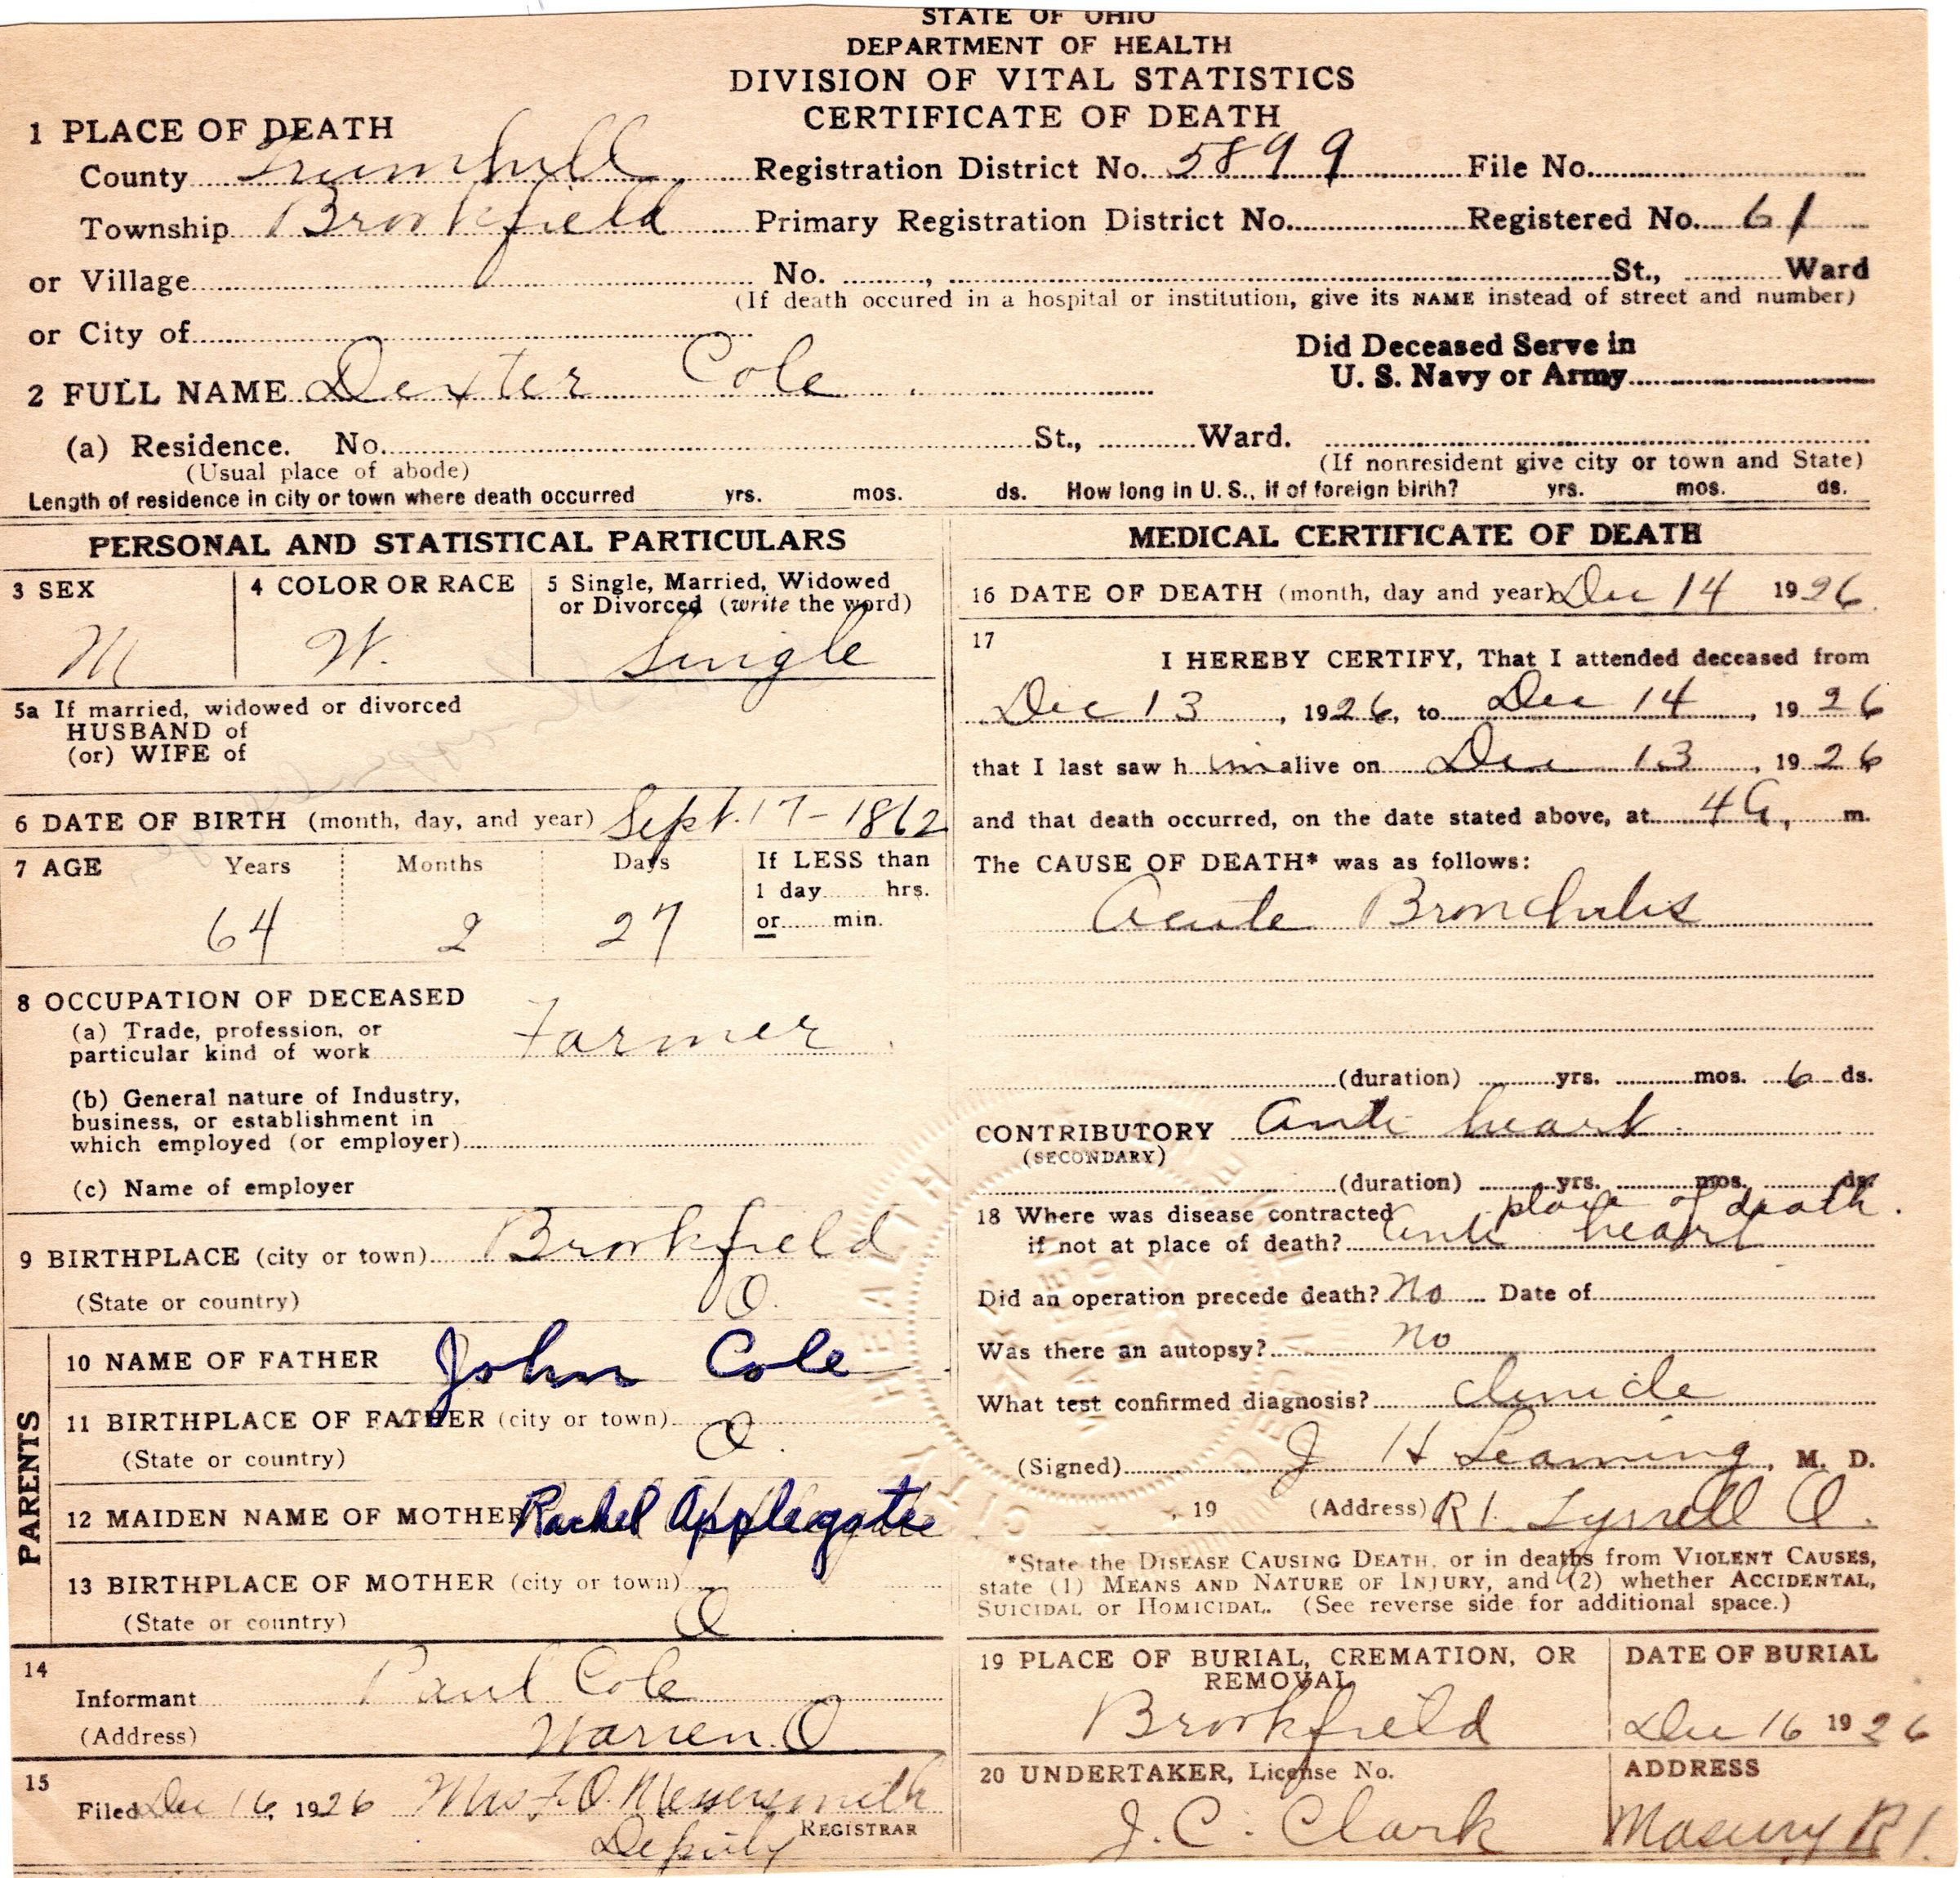 STATE OF OHIO
DEPARTMENT OF HEALTH
DIVISION OF VITAL STATISTICS
CERTIFICATE OF DEATH
1 PLACE OF DEATH
County Trumbull Registration District No. 5899 File No.
Township Brookfield Primary Registration District No. Registered No. 61
or Village No. , St., Ward
(If death occured in a hospital or institution, give its NAME instead of street and number)
or City of
Did Deceased Serve in
U. S. Navy or Army
2 FULL NAME Dexter Cole
(a) Residence. No. St., Ward.
(Usual place of abode) (If nonresident give city or town and State)
Length of residence in city or town where death occurred yrs. mos. ds. How long in U. S., if of foreign birth? yrs. mos. ds.
PERSONAL AND STATISTICAL PARTICULARS
3 SEX
M
4 COLOR OR RACE
W.
5 Single, Married, Widowed
or Divorced (write the word)
Single
5a If married, widowed or divorced
HUSBAND of
(or) WIFE of
6 DATE OF BIRTH (month, day, and year) Sept. 17-1862
7 AGE Years Months Days If LESS than
1 day hrs.
64 2 27 or min.
8 OCCUPATION OF DECEASED
(a) Trade, profession, or
particular kind of work Farmer
(b) General nature of Industry,
business, or establishment in
which employed (or employer)
(c) Name of employer
9 BIRTHPLACE (city or town) Brookfield
(State or country) O.
PARENTS
10 NAME OF FATHER John Cole
11 BIRTHPLACE OF FATHER (city or town)
(State or country) O.
12 MAIDEN NAME OF MOTHER Rachel Applegate
13 BIRTHPLACE OF MOTHER (city or town)
(State or country) O.
14
Informant Paul Cole
(Address) Warren. O
15
Filed Dec 16, 1926 Mrs F. O. Messersmith
Deputy REGISTRAR
MEDICAL CERTIFICATE OF DEATH
16 DATE OF DEATH (month, day and year) Dec 14 1926.
17
I HEREBY CERTIFY, That I attended deceased from
Dec 13, 1926, to Dec 14, 1926
that I last saw h im alive on Dec 13, 1926
and that death occurred, on the date stated above, at 4 a. m.
The CAUSE OF DEATH* was as follows:
Acute Bronchitis
(duration) yrs. mos. 6 ds.
CONTRIBUTORY heart
(SECONDARY)
(duration) yrs. mos. ds.
18 Where was disease contracted place of death.
if not at place of death? heart
Did an operation precede death? No Date of
Was there an autopsy? No
What test confirmed diagnosis?
(Signed) J H Leaming, M. D.
, 19 (Address) R1. Tyrrell O.
*State the DISEASE CAUSING DEATH, or in deaths from VIOLENT CAUSES,
state (1) MEANS AND NATURE OF INJURY, and (2) whether ACCIDENTAL,
SUICIDAL or HOMICIDAL. (See reverse side for additional space.)
19 PLACE OF BURIAL, CREMATION, OR
REMOVAL
Brookfield
DATE OF BURIAL
Dec 16 1926
20 UNDERTAKER, License No.
J. C. Clark
ADDRESS
Masury R1.